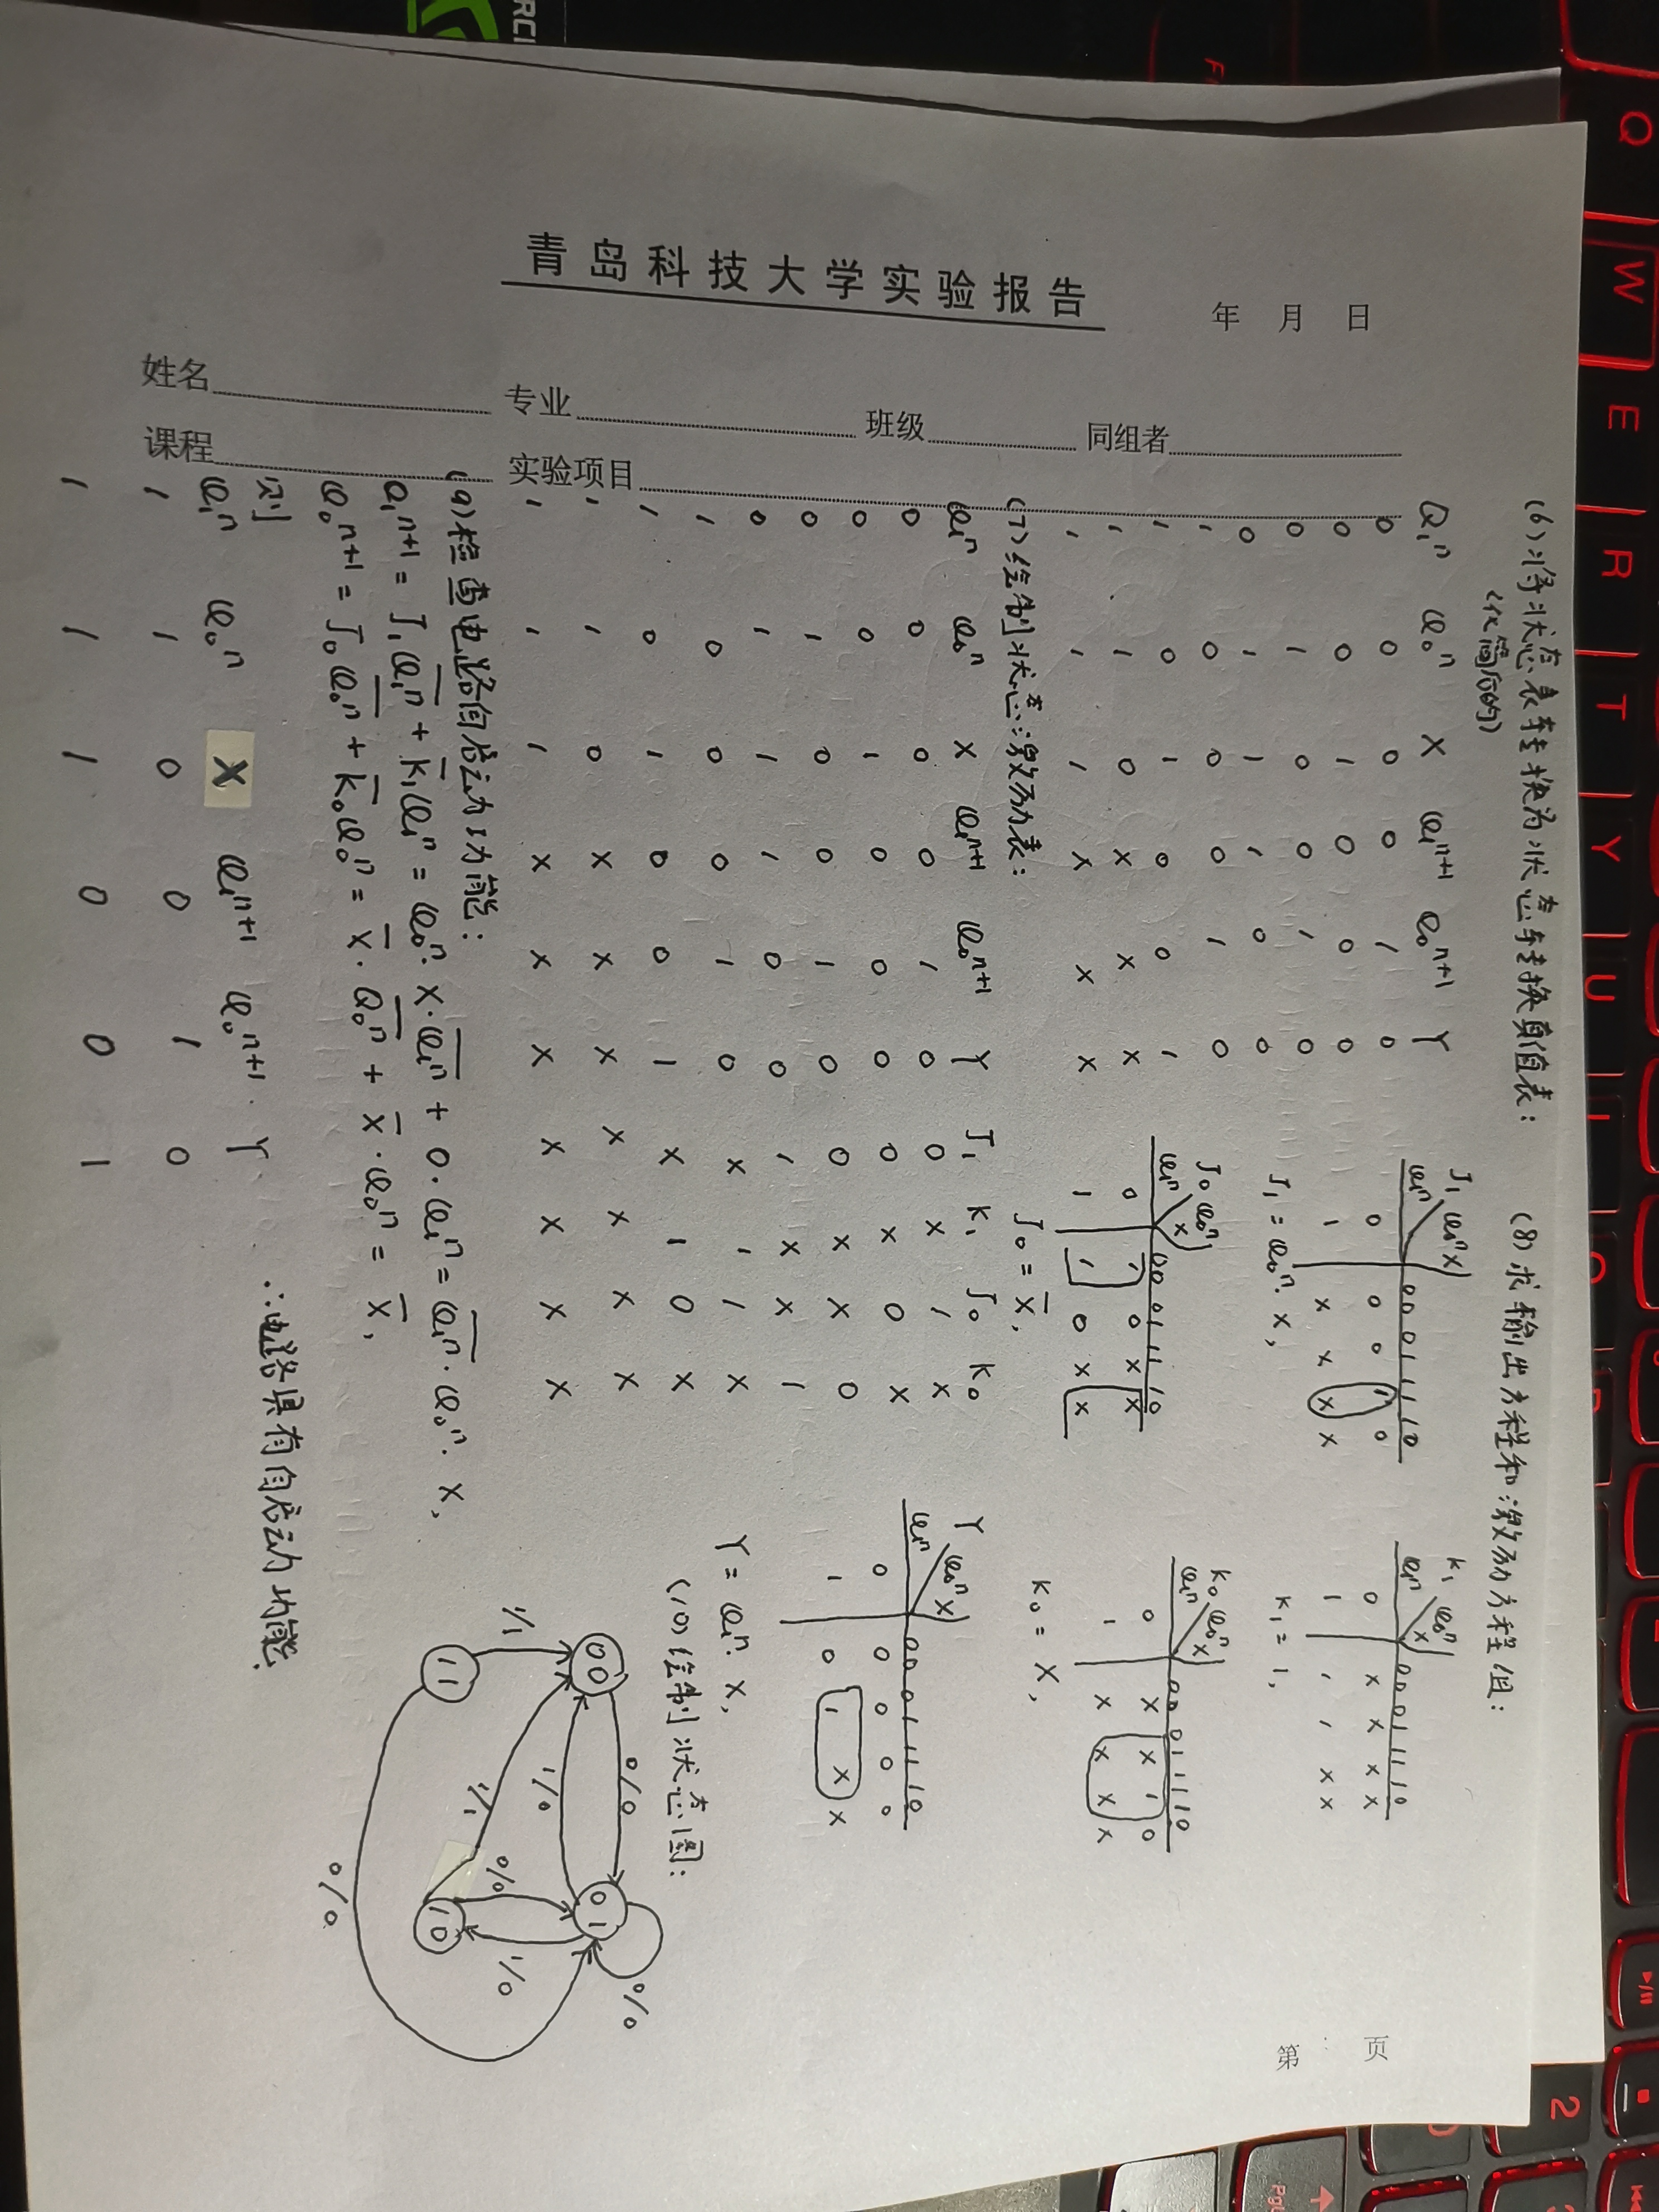 青岛科技大学实验报告
年 月 日
姓名 专业 班级 同组者
课程 实验项目
(6)将状态表转换为状态转换真值表:
(化简后的)
Q₁ⁿ Q₀ⁿ X Q₁ⁿ⁺¹ Q₀ⁿ⁺¹ Y
0 0 0 0 1 0
0 0 1 0 0 0
0 1 0 0 1 0
0 1 1 1 0 0
1 0 0 0 1 0
1 0 1 0 0 1
1 1 0 X X X
1 1 1 X X X
(7)绘制状态激励表:
Q₁ⁿ Q₀ⁿ X Q₁ⁿ⁺¹ Q₀ⁿ⁺¹ Y J₁ K₁ J₀ K₀
0 0 0 0 1 0 0 X 1 X
0 0 1 0 0 0 0 X 0 X
0 1 0 0 1 0 0 X X 0
0 1 1 1 0 0 1 X X 1
1 0 0 0 1 0 X 1 1 X
1 0 1 0 0 1 X 1 0 X
1 1 0 X X X X X X X
1 1 1 X X X X X X X
(8)求输出方程和激励方程组:
J₁ Q₀ⁿX
Q₁ⁿ 00 01 11 10
0 0 0 1 0
1 X X X X
J₁ = Q₀ⁿ·X,
K₁ Q₀ⁿX
Q₁ⁿ 00 01 11 10
0 X X X X
1 1 1 X X
K₁ = 1,
J₀ Q₀ⁿX
Q₁ⁿ 00 01 11 10
0 1 0 X X
1 1 0 X X
J₀ = X̅,
K₀ Q₀ⁿX
Q₁ⁿ 00 01 11 10
0 X X 1 0
1 X X X X
K₀ = X,
Y Q₀ⁿX
Q₁ⁿ 00 01 11 10
0 0 0 0 0
1 0 1 X X
Y = Q₁ⁿ·X,
(9)检查电路自启动功能:
Q₁ⁿ⁺¹ = J₁Q̅₁ⁿ + K̅₁Q₁ⁿ = Q₀ⁿ·X·Q̅₁ⁿ + 0·Q₁ⁿ = Q̅₁ⁿ·Q₀ⁿ·X,
Q₀ⁿ⁺¹ = J₀Q̅₀ⁿ + K̅₀Q₀ⁿ = X̅·Q̅₀ⁿ + X̅·Q₀ⁿ = X̅,
则
Q₁ⁿ Q₀ⁿ X Q₁ⁿ⁺¹ Q₀ⁿ⁺¹ Y
1 1 0 0 1 0
1 1 1 0 0 1
∴电路具有自启动功能.
(10)绘制状态图:
00
0/0
1/0
01
0/0
1/1
11
1/1
0/0
1/0
10
0/0
第 页
Q
W
E
R
T
Y
U
I
O
2